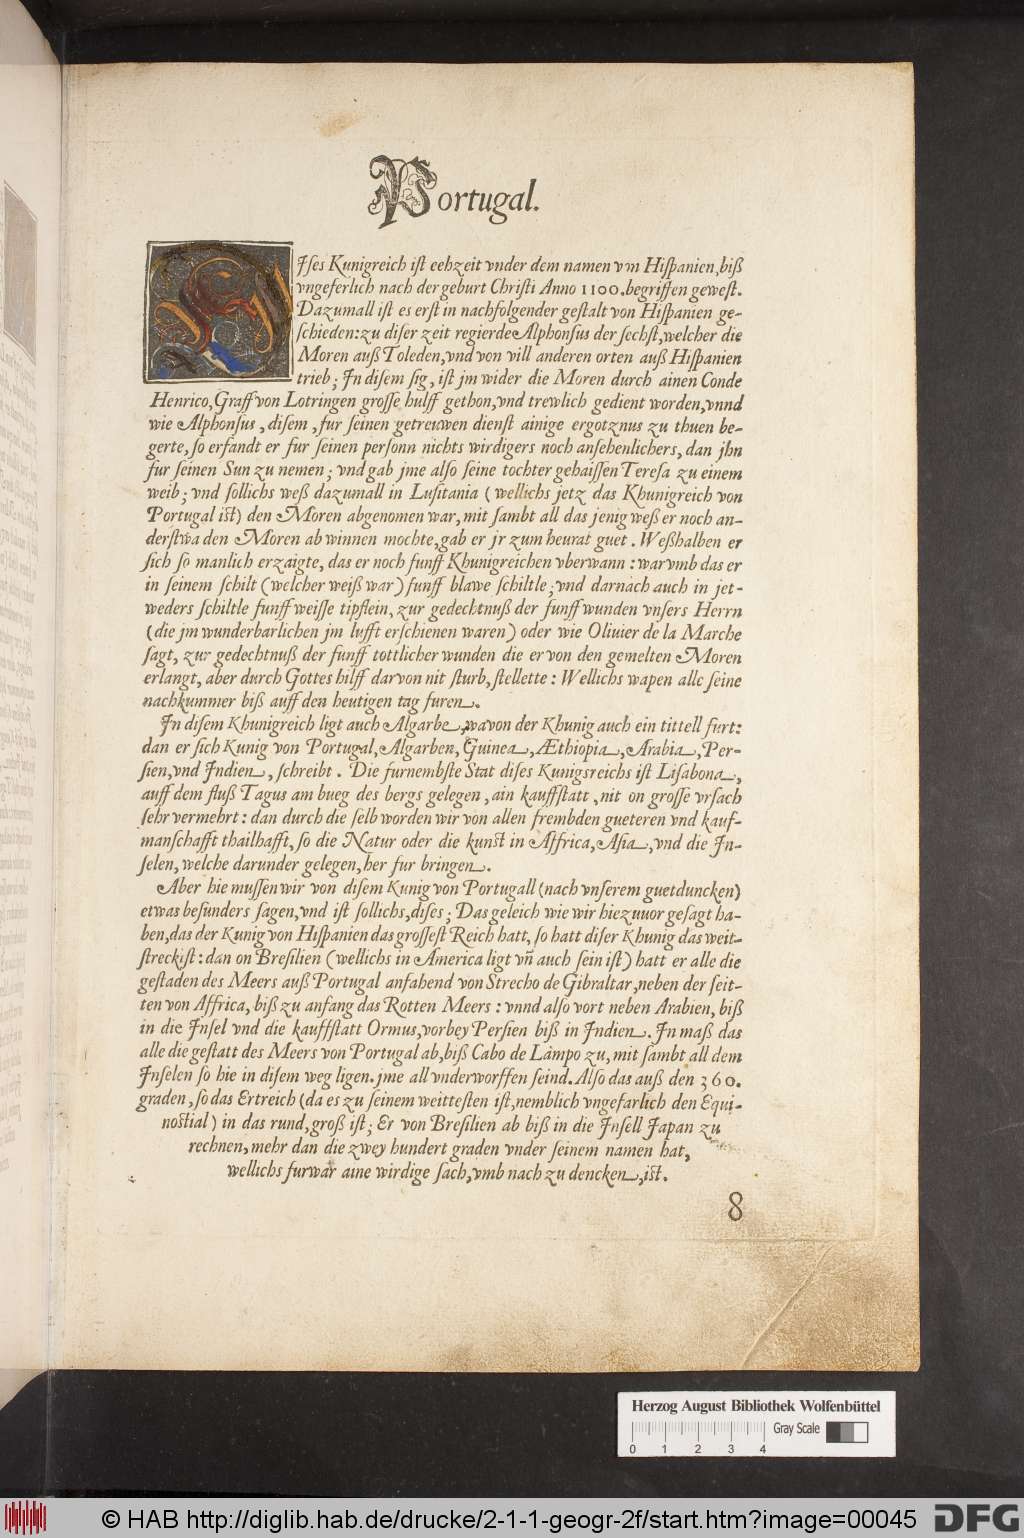 Portugal.
DJſes Kunigreich iſt eehzeit vnder dem namen vm Hiſpanien, biß
vngeferlich nach der geburt Chriſti Anno 1100. begriffen geweſt.
Dazumall iſt es erſt in nachfolgender geſtalt von Hiſpanien ge-
ſchieden: zu diſer zeit regierde Alphonſus der ſechſt, welcher die
Moren auß Toleden, vnd von vill anderen orten auß Hiſpanien
trieb; Jn diſem ſig, iſt jm wider die Moren durch ainen Conde
Henrico, Graff von Lotringen groſſe hulff gethon, vnd trewlich gedient worden, vnnd
wie Alphonſus, diſem, fur ſeinen getreuwen dienſt ainige ergotznus zu thuen be-
gerte, ſo erfandt er fur ſeinen perſonn nichts wirdigers noch anſehenlichers, dan jhn
fur ſeinen Sun zu nemen; vnd gab jme alſo ſeine tochter gehaiſſen Tereſa zu einem
weib; vnd ſollichs weß dazumall in Luſitania (wellichs jetz das Khunigreich von
Portugal iſt) den Moren abgenomen war, mit ſambt all das jenig weß er noch an-
derſtwa den Moren ab winnen mochte, gab er jr zum heurat guet. Weßhalben er
ſich ſo manlich erzaigte, das er noch funff Khunigreichen vberwann: warvmb das er
in ſeinem ſchilt (welcher weiß war) funff blawe ſchiltle; vnd darnach auch in jet-
weders ſchiltle funff weiſſe tipflein, zur gedechtnuß der funff wunden vnſers Herrn
(die jm wunderbarlichen jm lufft erſchienen waren) oder wie Oliuier de la Marche
ſagt, zur gedechtnuß der funff tottlicher wunden die er von den gemelten Moren
erlangt, aber durch Gottes hilff darvon nit ſturb, ſtellette: Wellichs wapen alle ſeine
nachkummer biß auff den heutigen tag furen.
Jn diſem Khunigreich ligt auch Algarbe, wavon der Khunig auch ein tittell furt:
dan er ſich Kunig von Portugal, Algarben, Guinea, Æthiopia, Arabia, Per-
ſien, vnd Jndien, ſchreibt. Die furnembſte Stat diſes Kunigsreichs iſt Liſabona,
auff dem fluß Tagus am bueg des bergs gelegen, ain kauffſtatt, nit on groſſe vrſach
ſehr vermehrt: dan durch die ſelb worden wir von allen frembden gueteren vnd kauf-
manſchafft thailhafft, ſo die Natur oder die kunſt in Affrica, Aſia, vnd die Jn-
ſelen, welche darunder gelegen, her fur bringen.
Aber hie muſſen wir von diſem Kunig von Portugall (nach vnſerem guetduncken)
etwas beſunders ſagen, vnd iſt ſollichs, diſes; Das geleich wie wir hiezuuor geſagt ha-
ben, das der Kunig von Hiſpanien das groſſeſt Reich hatt, ſo hatt diſer Khunig das weit-
ſtreckiſt: dan on Breſilien (wellichs in America ligt vñ auch ſein iſt) hatt er alle die
geſtaden des Meers auß Portugal anfahend von Strecho de Gibraltar, neben der ſeit-
ten von Affrica, biß zu anfang das Rotten Meers: vnnd alſo vort neben Arabien, biß
in die Jnſel vnd die kauffſtatt Ormus, vorbey Perſien biß in Jndien. Jn maß das
alle die geſtatt des Meers von Portugal ab, biß Cabo de Lampo zu, mit ſambt all dem
Jnſelen ſo hie in diſem weg ligen. jme all vnderworffen ſeind. Alſo das auß den 360.
graden, ſo das Ertreich (da es zu ſeinem weitteſten iſt, nemblich vngefarlich den Equi-
noctial) in das rund, groß iſt; Er von Breſilien ab biß in die Jnſell Japan zu
rechnen, mehr dan die zwey hundert graden vnder ſeinem namen hat,
wellichs furwar aine wirdige ſach, vmb nach zu dencken, iſt.
8
Herzog August Bibliothek Wolfenbüttel
Gray Scale
0 1 2 3 4
© HAB http://diglib.hab.de/drucke/2-1-1-geogr-2f/start.htm?image=00045
DFG